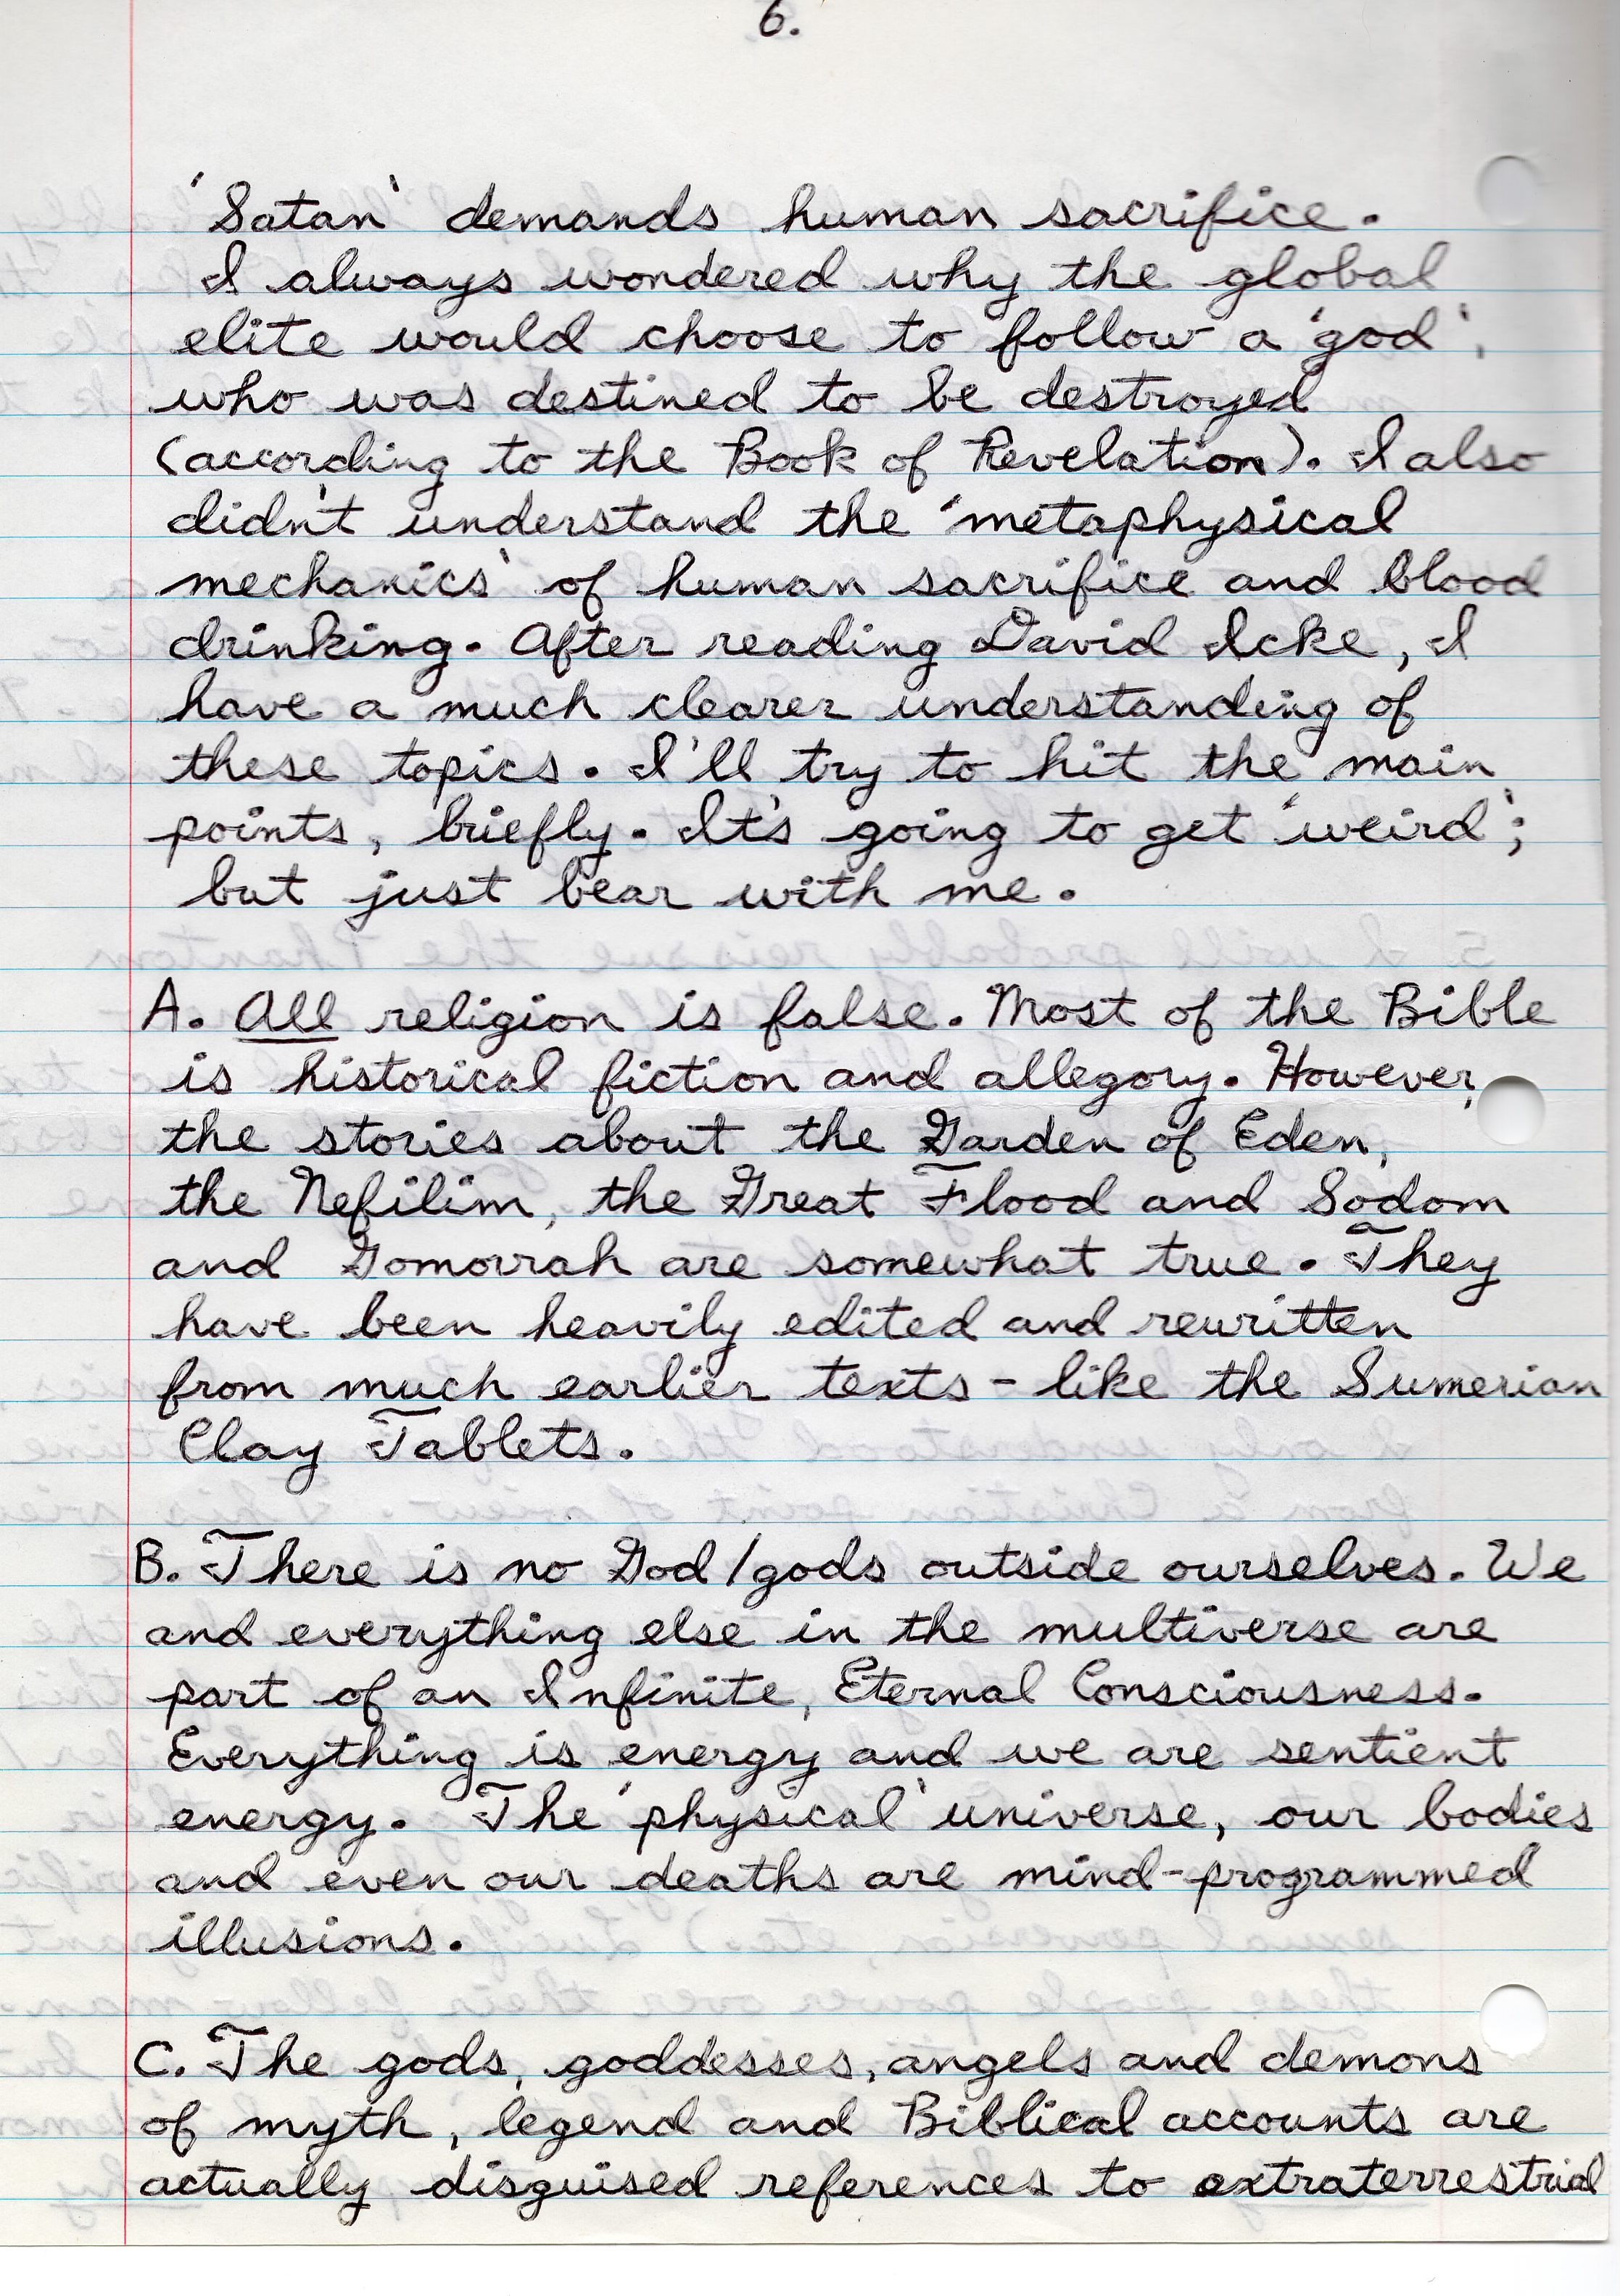 6.
'Satan' demands human sacrifice.
I always wondered why the global
elite would choose to follow a 'god',
who was destined to be destroyed
(according to the Book of Revelation). I also
didn't understand the 'metaphysical
mechanics' of human sacrifice and blood
drinking. After reading David Icke, I
have a much clearer understanding of
these topics. I'll try to hit the main
points, briefly. It's going to get 'weird';
but just bear with me.
A. All religion is false. Most of the Bible
is historical fiction and allegory. However,
the stories about the Garden of Eden,
the Nefilim, the Great Flood and Sodom
and Gomorrah are somewhat true. They
have been heavily edited and rewritten
from much earlier texts - like the Sumerian
Clay Tablets.
B. There is no God/gods outside ourselves. We
and everything else in the multiverse are
part of an Infinite, Eternal Consciousness.
Everything is energy and we are sentient
energy. The 'physical' universe, our bodies
and even our deaths are mind-programmed
illusions.
C. The gods, goddesses, angels and demons
of myth, legend and Biblical accounts are
actually disguised references to extraterrestrial